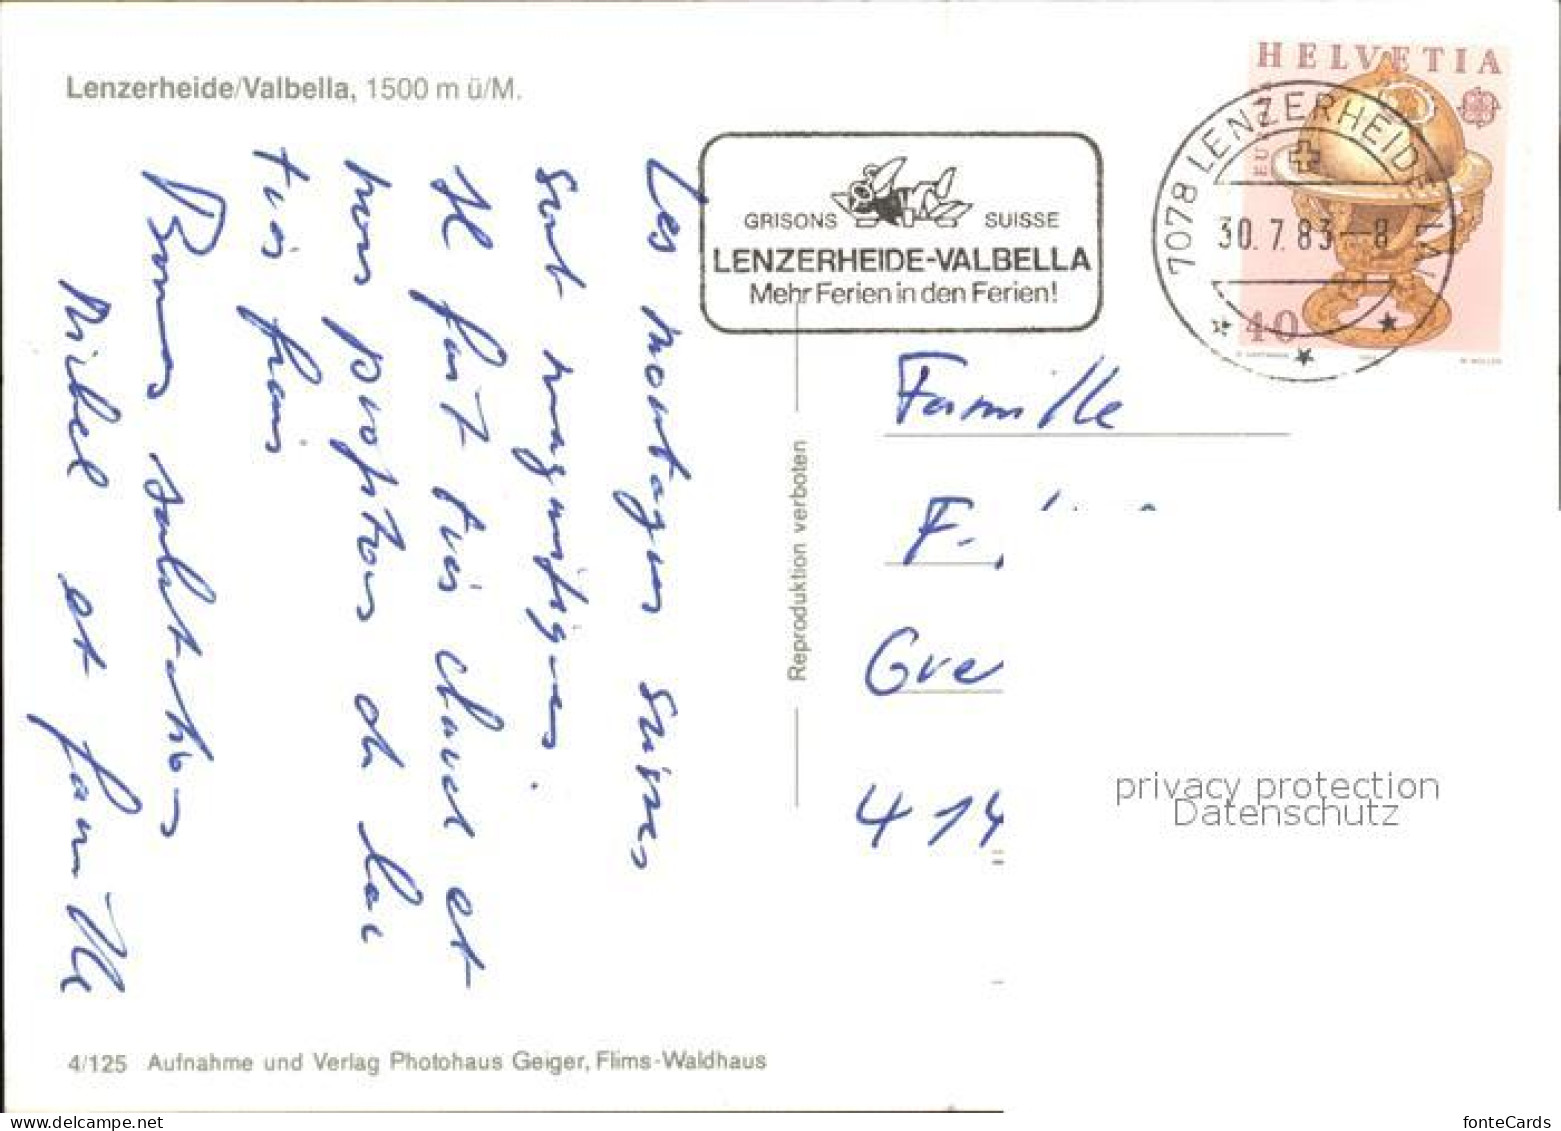 Lenzerheide/Valbella, 1500 m ü/M.
HELVETIA
EUROPA
40
7078 LENZERHEIDE
30.7.83—8
GRISONS SUISSE
LENZERHEIDE-VALBELLA
Mehr Ferien in den Ferien!
Les montagnes suisses
sont magnifiques.
Il fait très chaud et
nous profitons du lac
très frais
Bonnes salutations
et famille
Reproduktion verboten
Famille
F
Gre
414
privacy protection
Datenschutz
4/125 Aufnahme und Verlag Photohaus Geiger, Flims-Waldhaus
www.delcampe.net
fonteCards